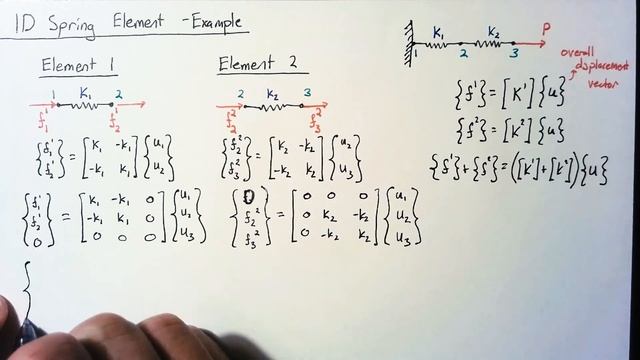 1D Spring Element - Example
Element 1
1 K₁ 2
f₁¹ f₂¹
{f₁¹ f₂¹} = [K₁ -K₁ -K₁ K₁] {u₁ u₂}
{f₁¹ f₂¹ 0} = [K₁ -K₁ 0 -K₁ K₁ 0 0 0 0] {u₁ u₂ u₃}
Element 2
2 K₂ 3
f₂² f₃²
{f₂² f₃²} = [K₂ -K₂ -K₂ K₂] {u₂ u₃}
{0 f₂² f₃²} = [0 0 0 0 K₂ -K₂ 0 -K₂ K₂] {u₁ u₂ u₃}
K₁ K₂ P
1 2 3
overall
displacement
vector
{f¹} = [K¹]{u}
{f²} = [K²]{u}
{f¹}+{f²} = ([K¹]+[K²]){u}